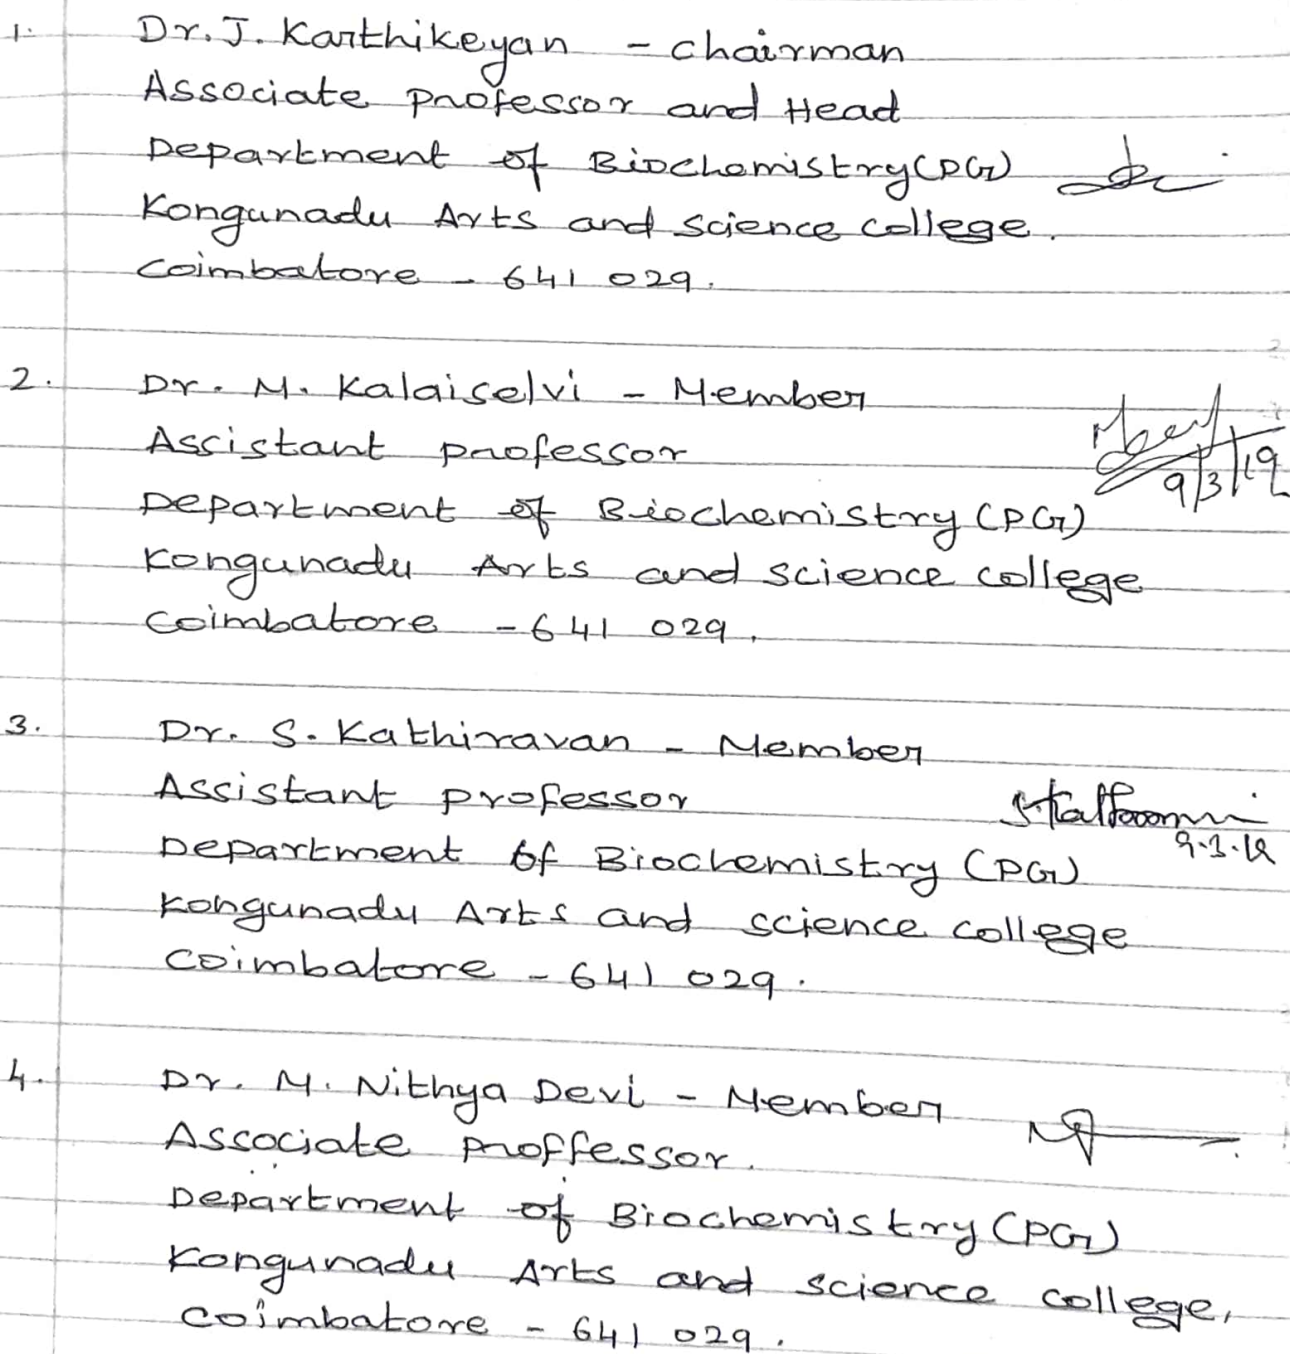 1. Dr. J. Karthikeyan - chairman
Associate professor and Head
Department of Biochemistry (PG)
Kongunadu Arts and science college.
Coimbatore - 641 029.
2. Dr. M. Kalaiselvi - Member
Assistant professor
9/3/19
Department of Biochemistry (PG)
Kongunadu Arts and science college
Coimbatore - 641 029.
3. Dr. S. Kathiravan - Member
Assistant professor
9.3.19
Department of Biochemistry (PG)
Kongunadu Arts and science college
Coimbatore - 641 029.
4. Dr. M. Nithya Devi - Member
Associate proffessor.
Department of Biochemistry (PG)
Kongunadu Arts and science college,
Coimbatore - 641 029.